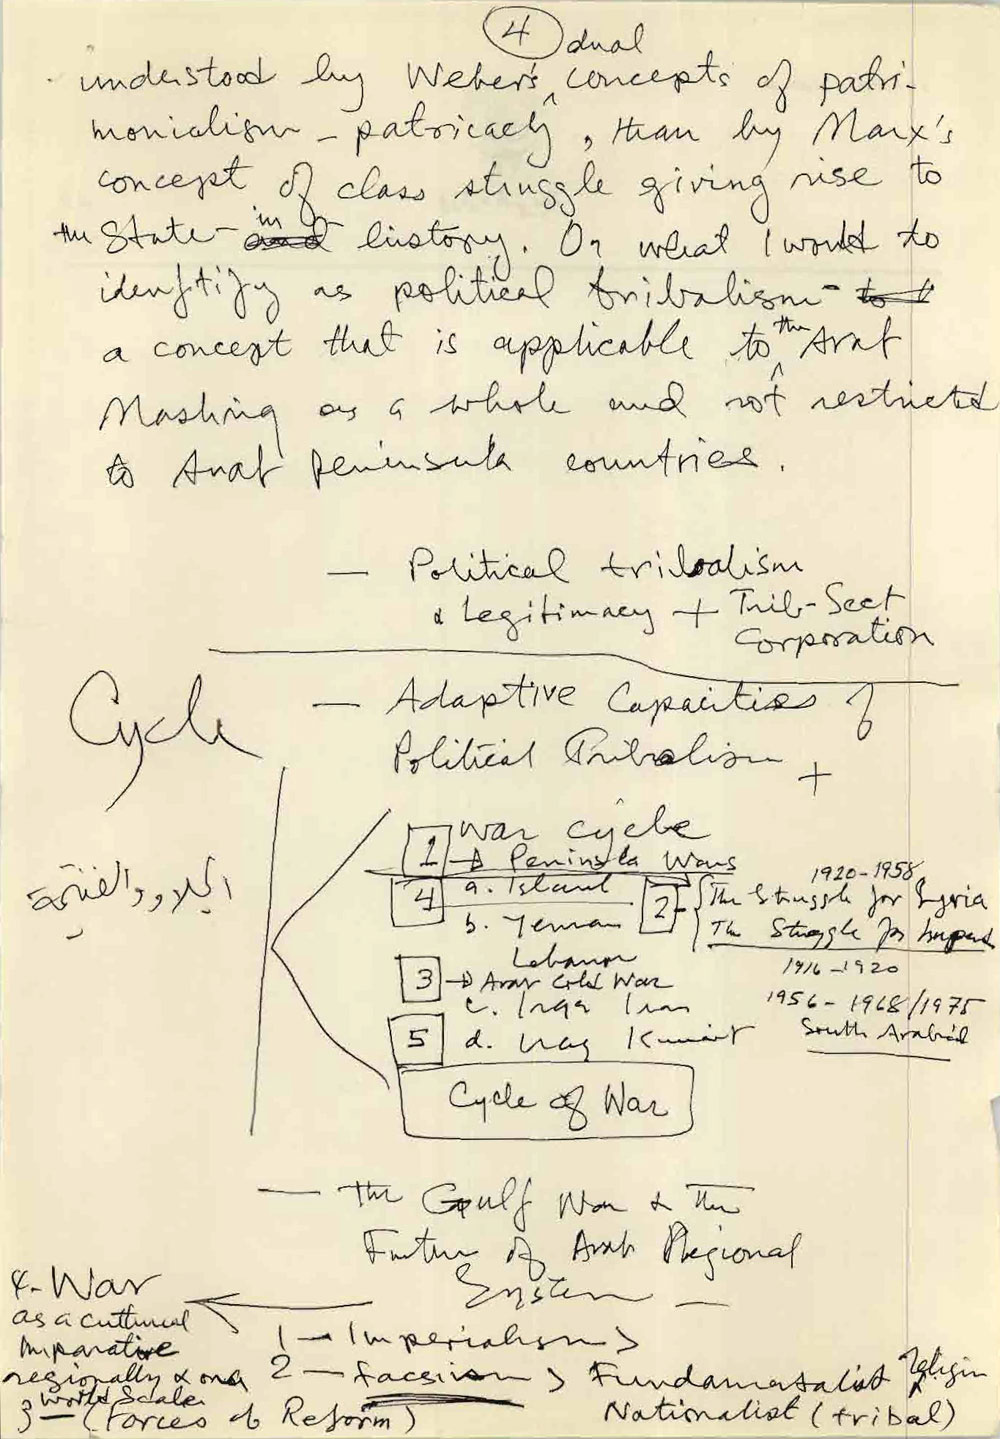 4
dual
understood by Weber's concepts of patri-
monialism - patricacly, than by Marx's
concept of class struggle giving rise to
the State - in history. Or what I would to
identify as political tribalism -
a concept that is applicable to the Arab
Mashriq as a whole and not restricted
to Arab Peninsula countries.
— Political tribalism
& Legitimacy + Trib-Sect
Corporation
Cycle
— Adaptive Capacities of
Political Tribalism +
1 War cycle
→ Peninsula Wars
4 a. Island
b. Yeman
2 1920-1958
The Struggle for Syria
The Struggle for
1916-1920
Lebanon
3 → Arab Cold War
c. Iraq Iran
1956-1968/1975
South Arabia
5 d. Iraq Kuwait
Cycle of War
— The Gulf War & The
Future of Arab Regional
System —
4- War
as a cultural
Imparative
regionally & on a
world Scale
1 - Imperialism >
2 - Facsism > Fundamentalist religin
Nationalist (tribal)
3 - (Forces of Reform)